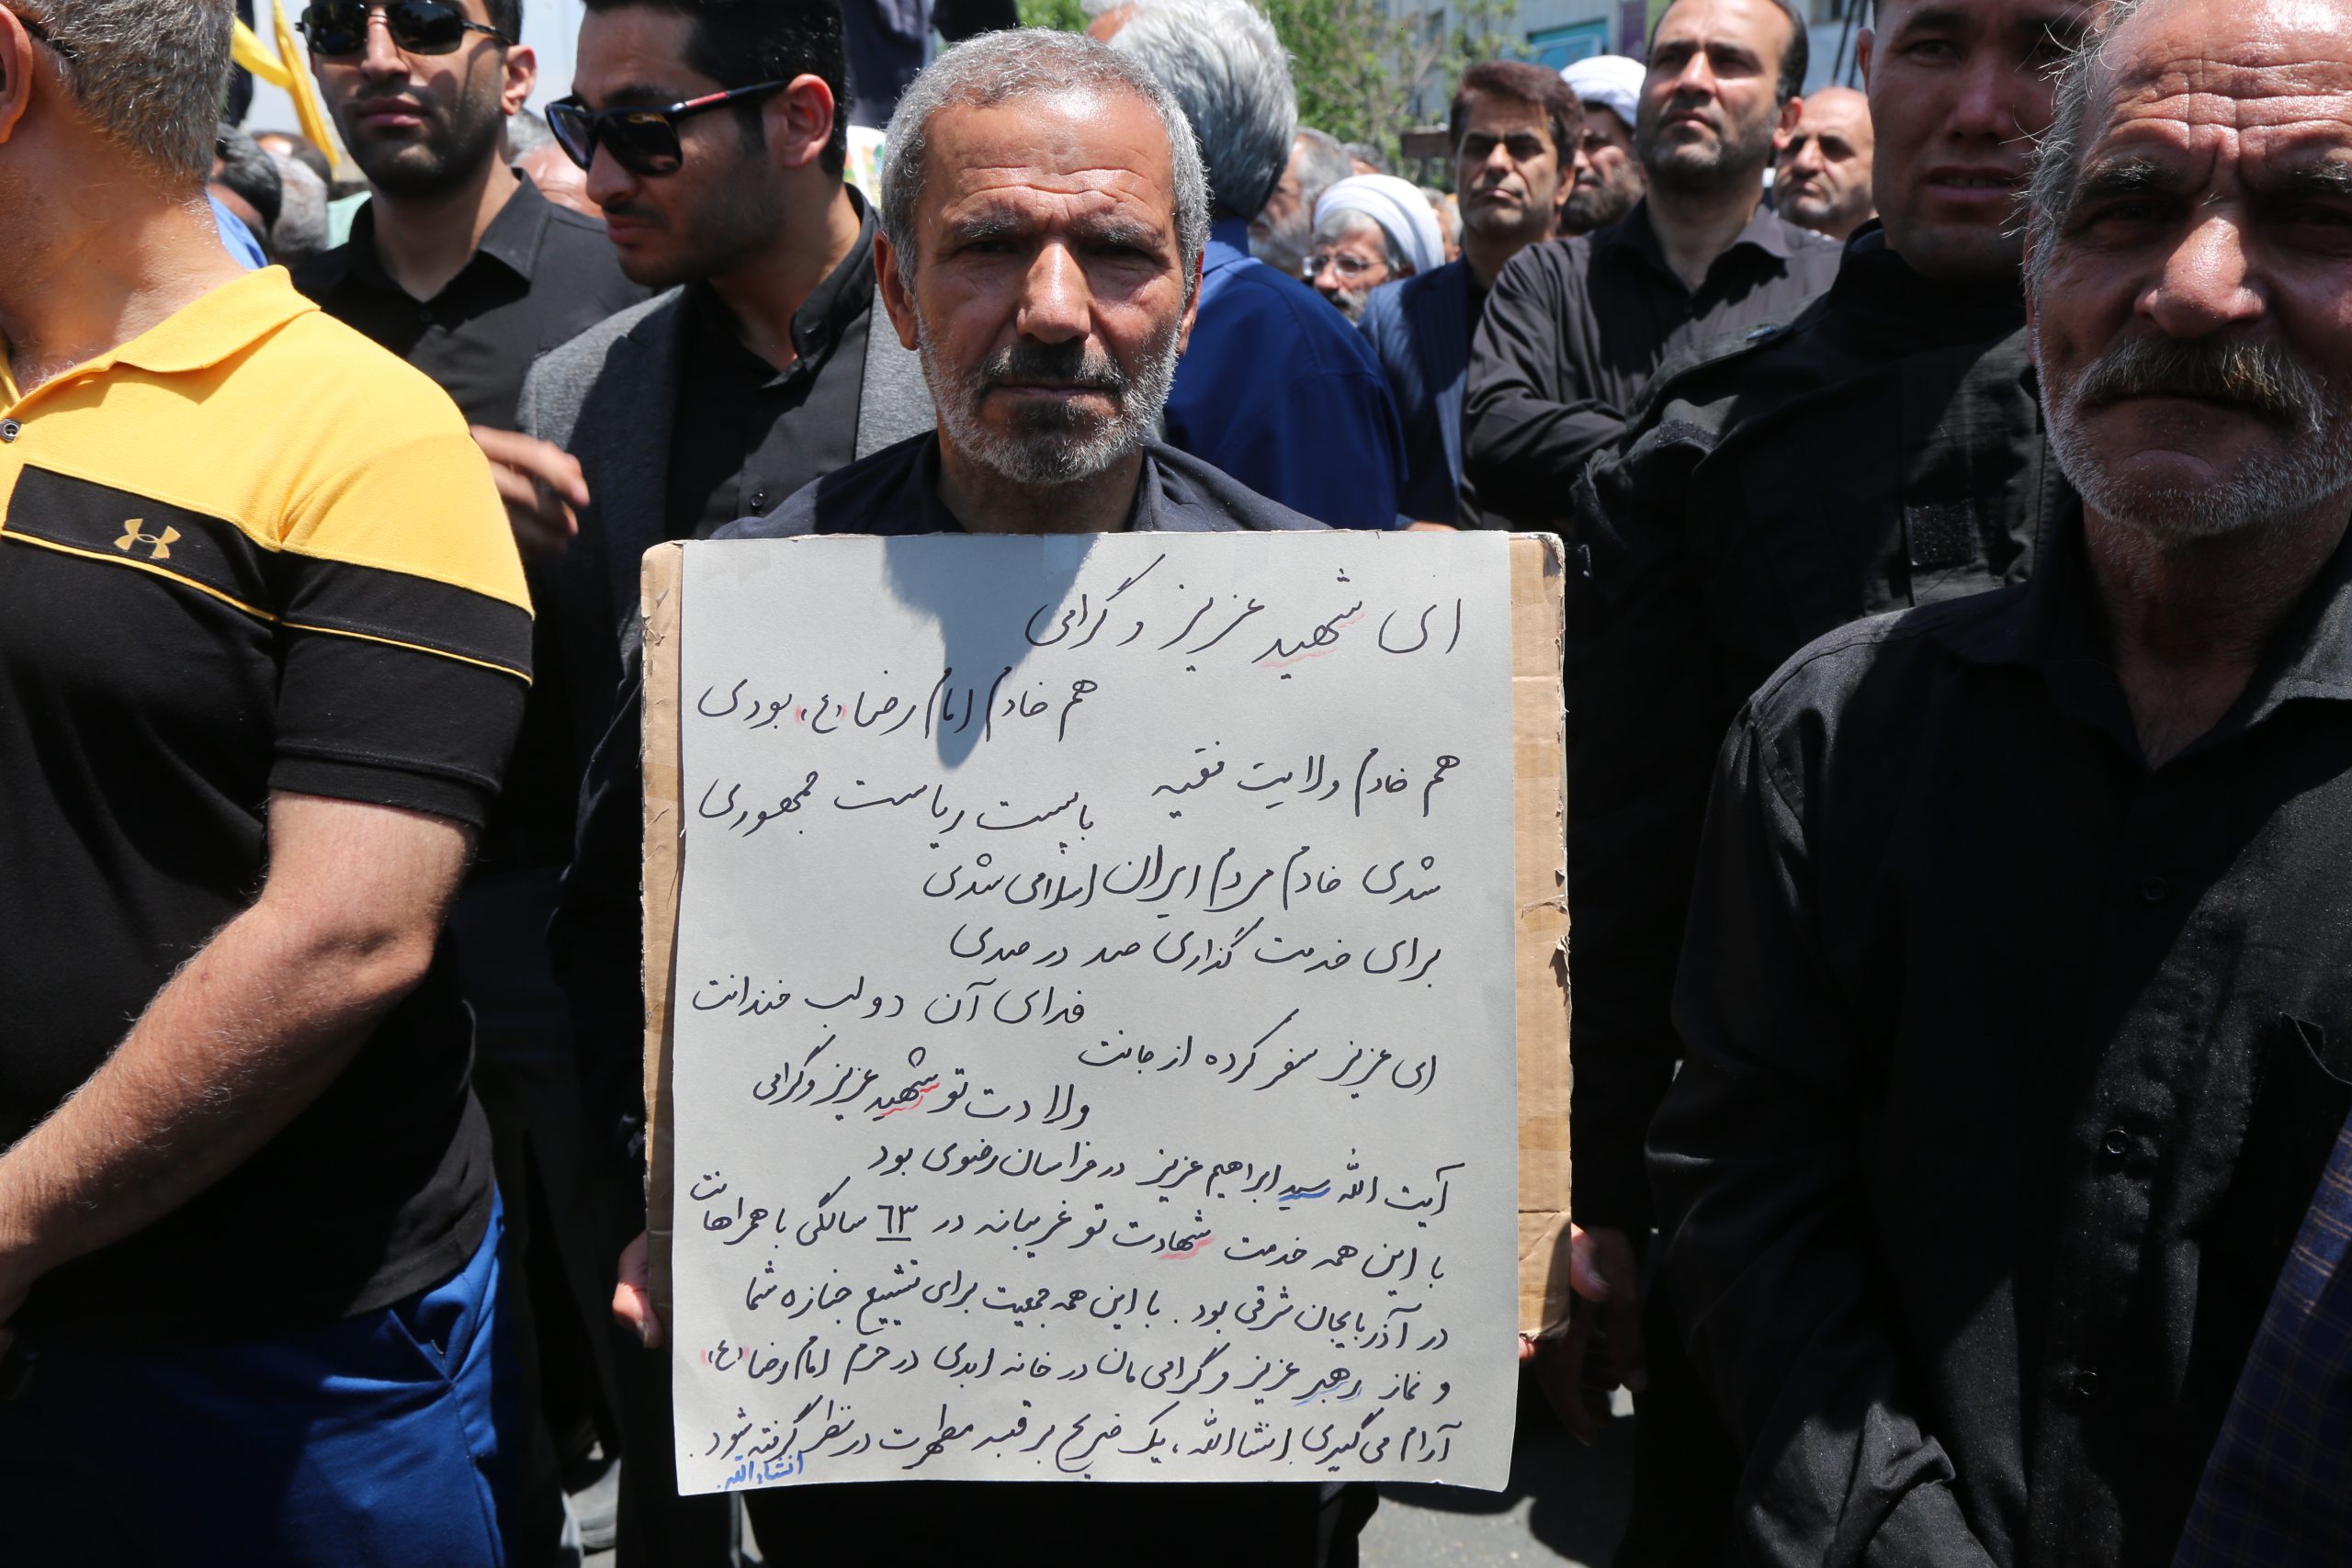 ای شهید عزیز و گرامی
هم خادم امام رضا (ع) بودی
هم خادم ولایت فقیه
با پست ریاست جمهوری
شدی خادم مردم ایران اسلامی شدی
برای خدمت گذاری صد در صدی
فدای آن دو لب خندانت
ای عزیز سفر کرده از جانت
ولادت تو شهید عزیز و گرامی
آیت الله سید ابراهیم عزیز در خراسان رضوی بود
با این همه خدمت شهادت تو غریبانه در ٦٣ سالگی با همراهانت
در آذربایجان شرقی بود. با این همه جمعیت برای تشییع جنازه شما
و نماز رهبر عزیز و گرامی مان در خانه ابدی در حرم امام رضا (ع)
آرام می گیری انشاالله، یک ضریح بر قبر مطهرت در نظر گرفته شود.
انشاءالله